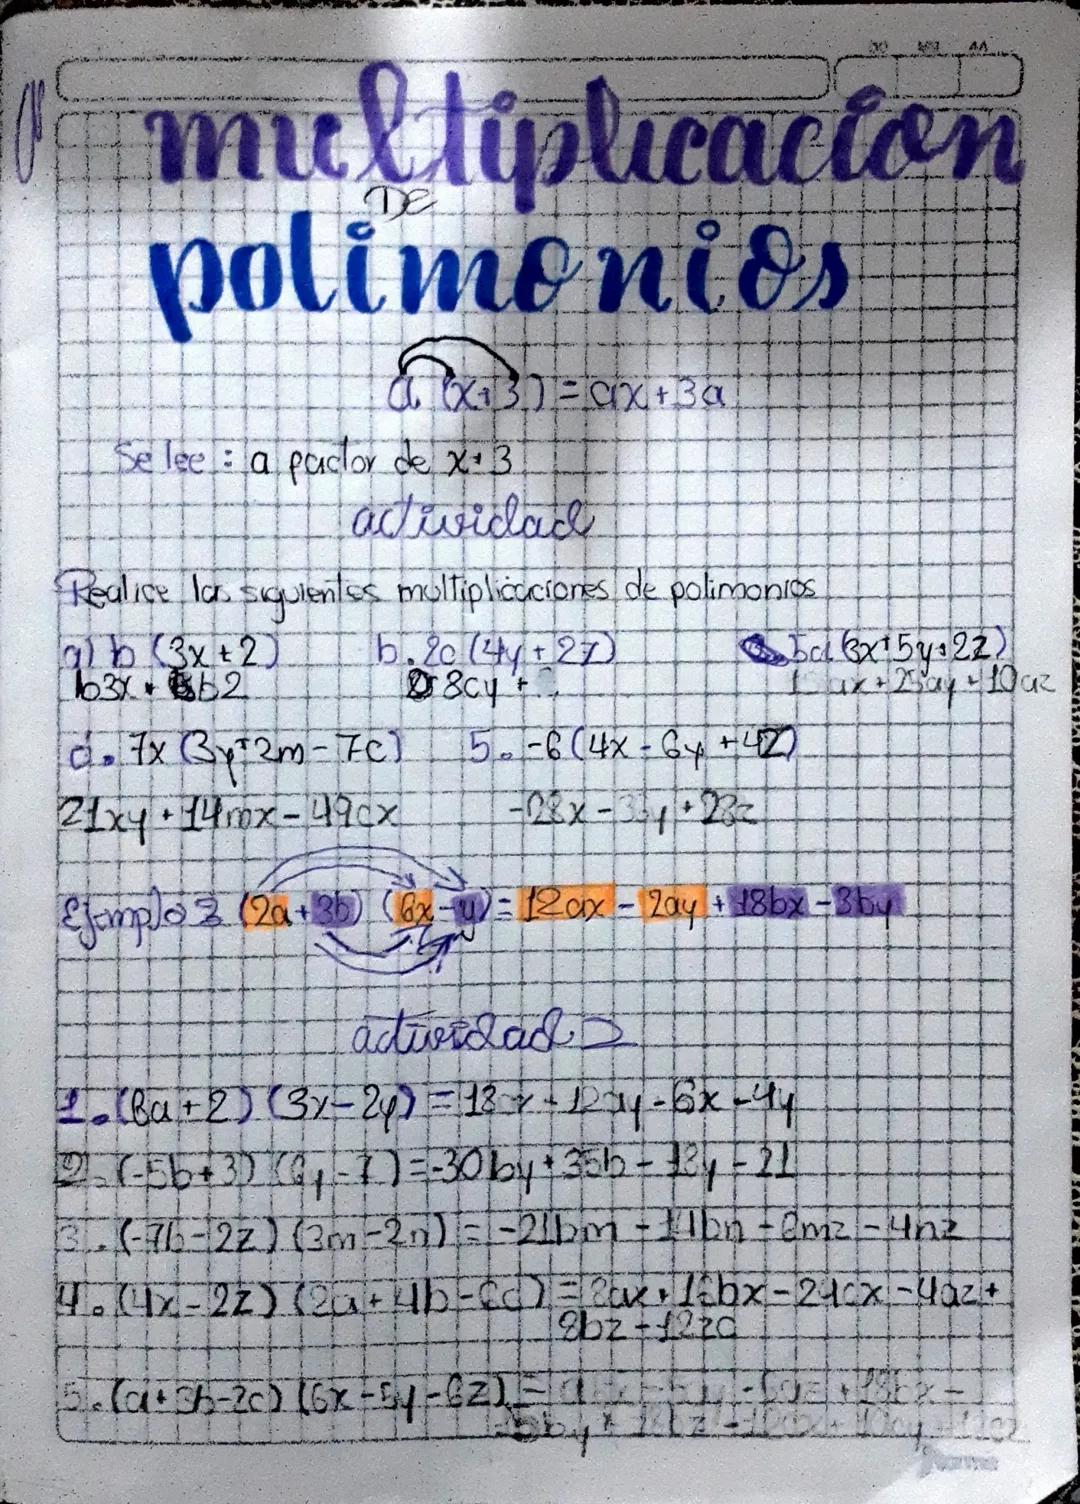 DD MM AA
multiplicación
DE
polimonios
a (x+3) = ax+3a
Se lee: a factor de x+3
actividad
Realice las siguientes multiplicaciones de polimonios
a) b (3x+2) b. 2c (4y+2z) 5a(3x+5y+2z)
b3x + b2 8cy + ax+25ay+10az
d. 7x (3y+2m-7c) 5. -6(4x-6y+4z)
21xy+14mx-49cx -28x - y+28z
Ejemplo 3 (2a+3b) (6x-y)=12ax-2ay+18bx-3by
actividad 2
1. (6a+2) (3x-2y) = 12ay-6x-4y
2. (-5b+3) (6y-7)=-30by+35b-18y-21
3. (-7b-2z) (3m-2n) = -21bm-14bn-6mz-4nz
4. (4x-2z) (2a+4b-6c) = 8ax+16bx-24cx-4az+
8bz-12zc
5. (a+3b-2c) (6x-5y-6z) =